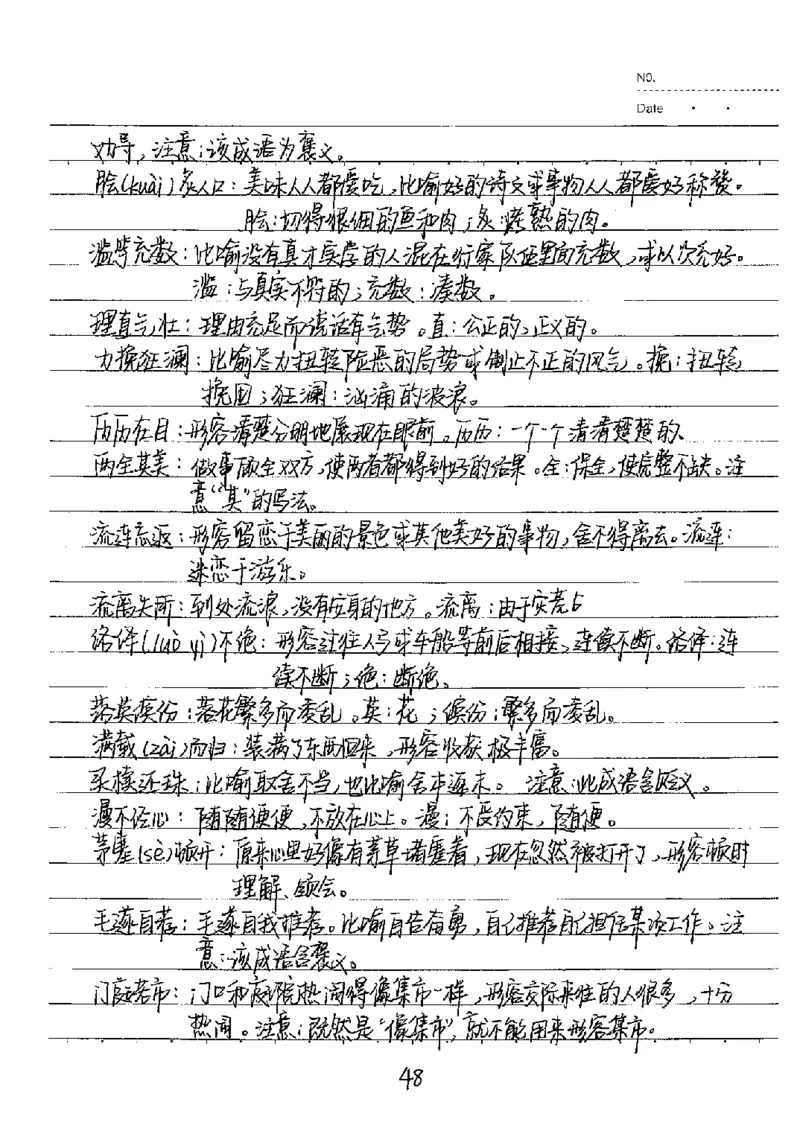 NO.
Date
劝导，注意：该成语为褒义。
脍(kuài)炙人口：美味人人都爱吃，比喻好的诗文或事物人人都爱好称赞。
脍：切得很细的鱼和肉；炙：烤熟的肉。
滥竽充数：比喻没有真才实学的人混在行家队伍里面充数，或以次充好。
滥：与真实不符的；充数：凑数。
理直气壮：理由充足而说话有气势。直：公正的，正义的。
力挽狂澜：比喻尽力扭转险恶的局势或制止不正的风气。挽：扭转，
挽回；狂澜：汹涌的波浪。
历历在目：形容清楚分明地展现在眼前。历历：一个个清清楚楚的。
两全其美：做事顾全双方，使两者都得到好的结果。全：保全，使完整不缺。注
意“其”的写法。
流连忘返：形容留恋于美丽的景色或其他美好的事物，舍不得离去。流连：
迷恋于游乐。
流离失所：到处流浪，没有安身的地方。流离：由于灾荒
络绎(luò yì)不绝：形容过往人马或车船等前后相接，连续不断。络绎：连
续不断；绝：断绝。
落英缤纷：落花繁多而凌乱。英：花；缤纷：繁多而凌乱。
满载(zài)而归：装满了东西回来，形容收获极丰富。
买椟还珠：比喻取舍不当，也比喻舍本逐末。注意：此成语含贬义。
漫不经心：随随便便，不放在心上。漫：不受约束，随便。
茅塞(sè)顿开：原来心里好像有茅草堵塞着，现在忽然被打开了，形容顿时
理解、领会。
毛遂自荐：毛遂自我推荐。比喻自告奋勇，自己推荐自己担任某项工作。注
意：该成语含褒义。
门庭若市：门口和庭院热闹得像集市一样，形容交际来往的人很多，十分
热闹。注意：既然是“像集市”，就不能用来形容集市。
48